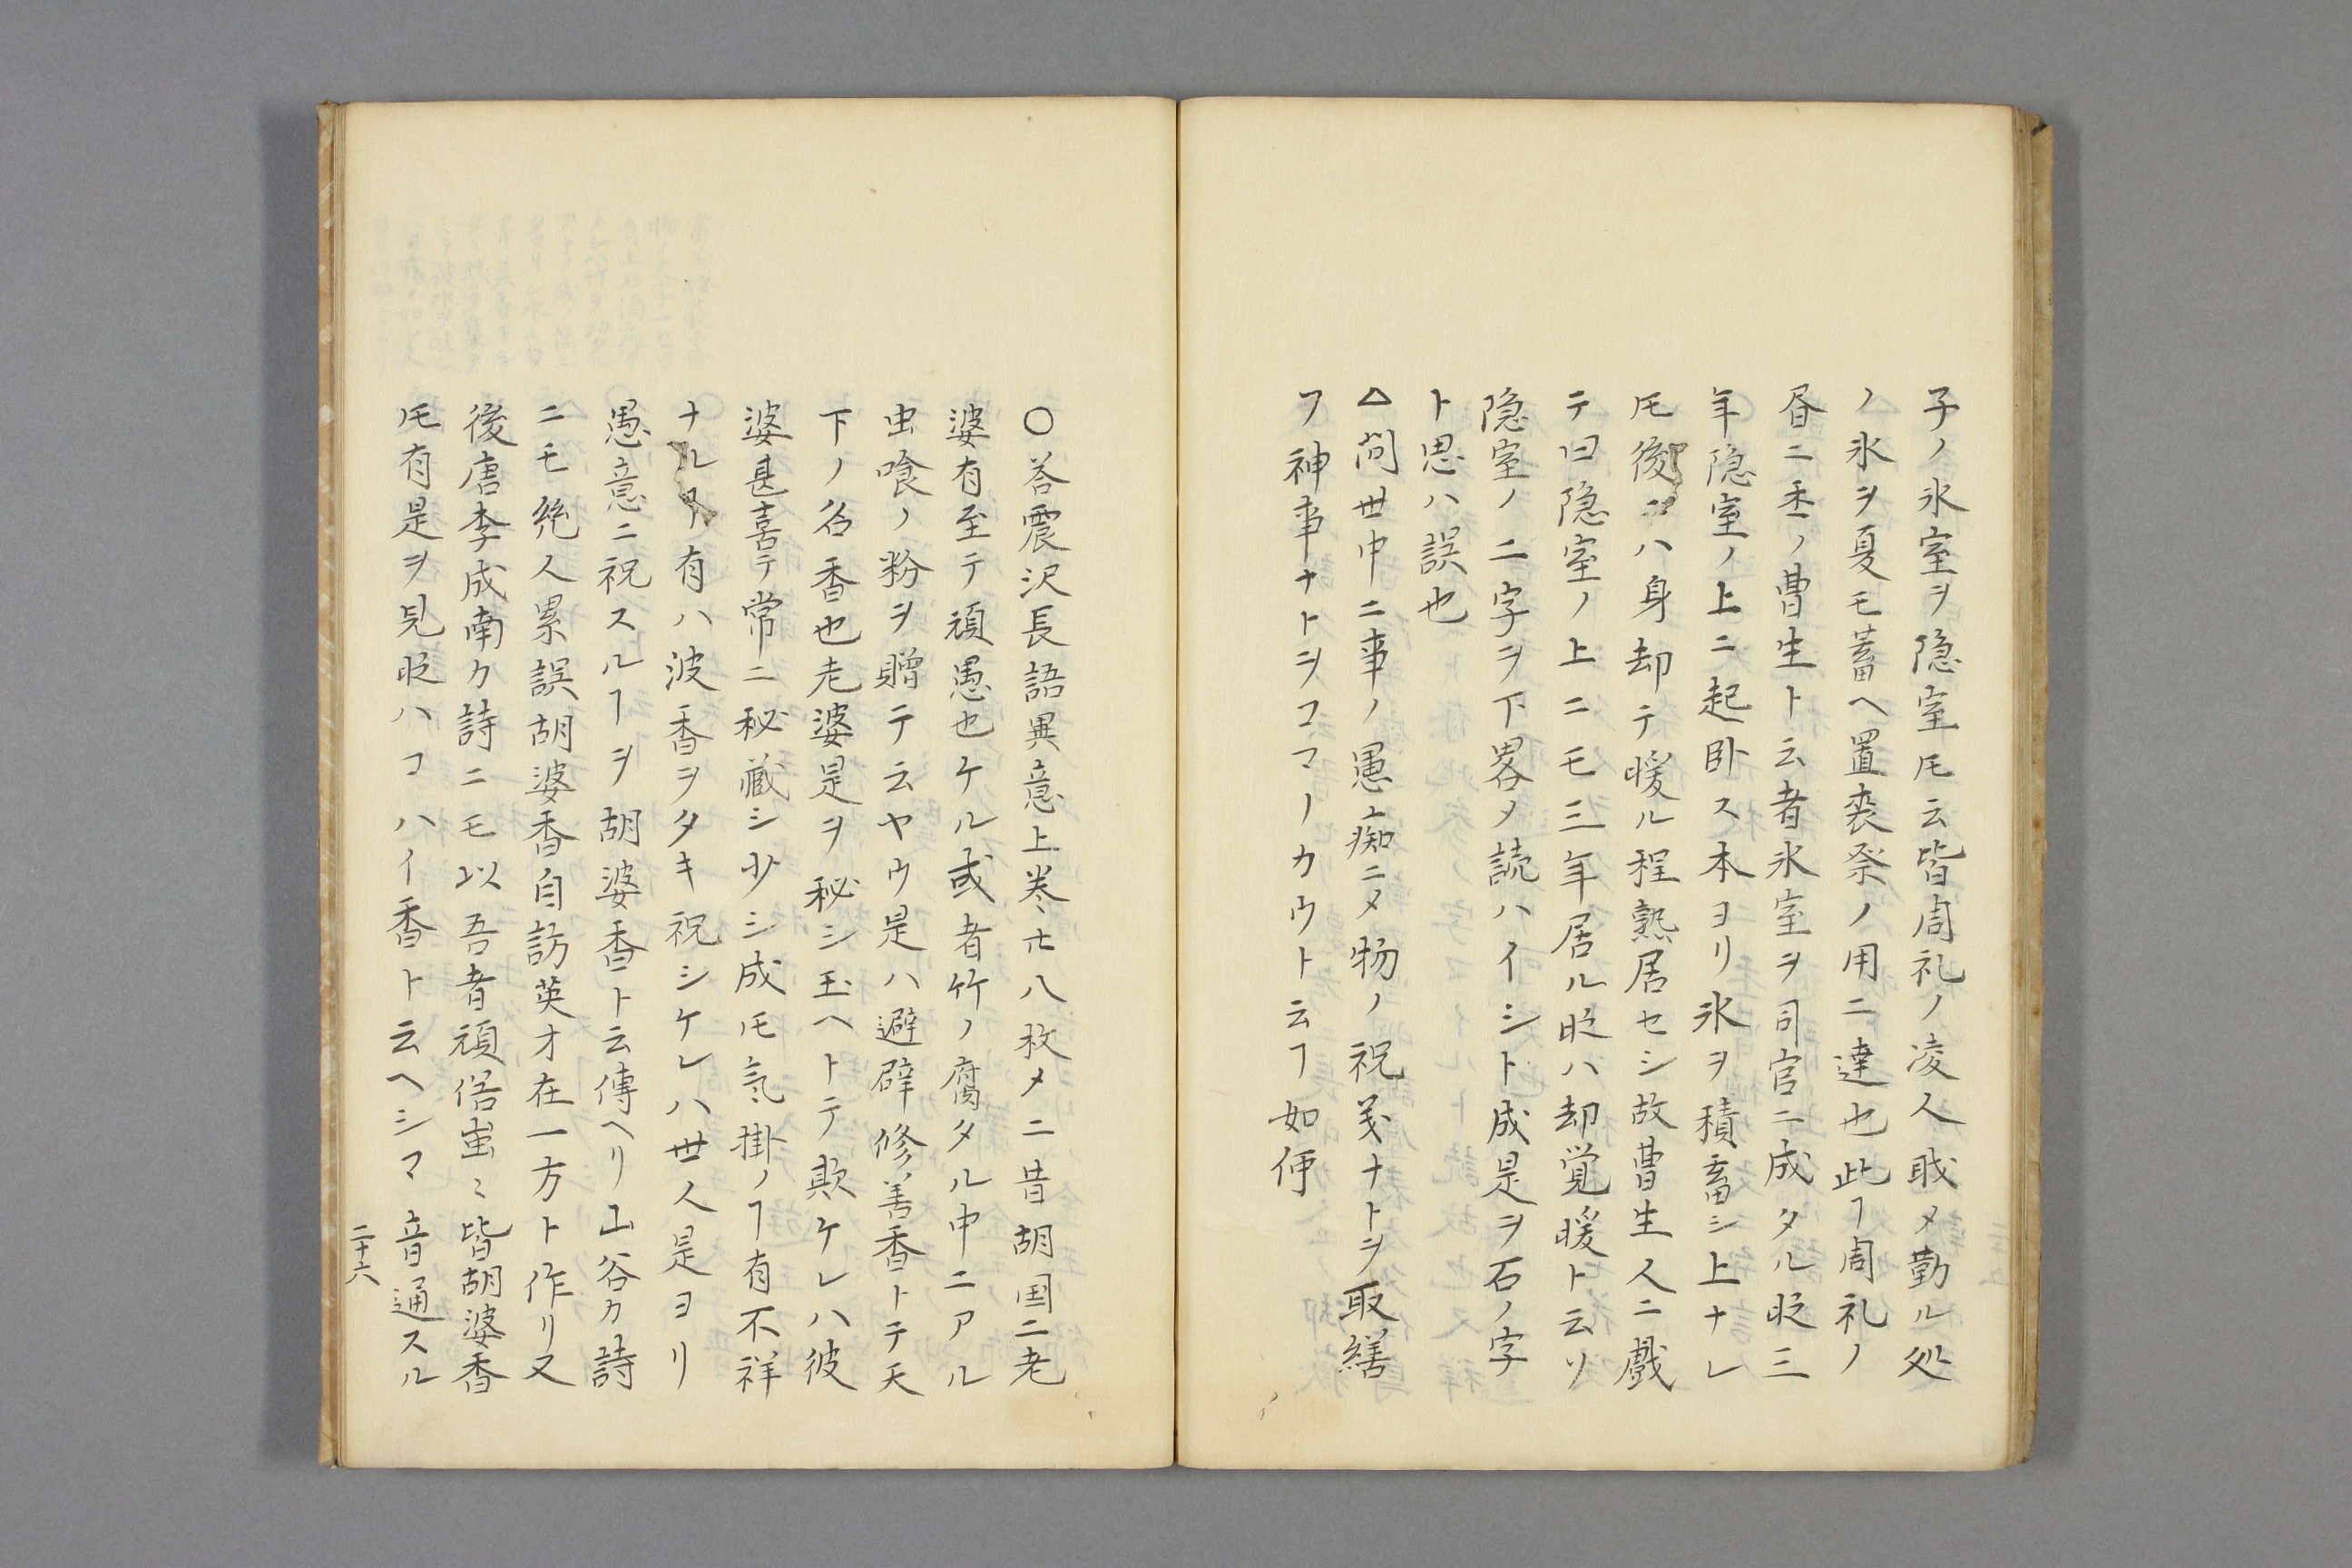 子ノ氷室ヲ隠室𪜈云皆周礼ノ凌人戝メ勤ル処
ノ氷ヲ夏モ蓄ヘ置喪祭ノ用ニ達也此ヿ周礼ノ
昏ニ悉ノ曹生ト云者氷室ヲ司官ニ成タル时三
年隠室ノ上ニ起卧ス本ヨリ氷ヲ積畜シ上ナレ
𪜈後ニハ身却テ暖ル程熟居セシ故曹生人ニ戲
テ曰隠室ノ上ニモ三年居ル时ハ却覚暖ト云リ
隠室ノ二字ヲ下畧メ読ハイシト成是ヲ石ノ字
ト思ハ誤也
△问世中ニ事ノ愚痴ニメ物ノ祝义ナトヲ取繕
フ神事ナトヲコマノカウト云ヿ如何
〇答震沢長語異意上巻廿八枚メニ昔胡国ニ老
婆有至テ頑愚也ケル或者竹ノ腐タル中ニアル
虫喰ノ粉ヲ贈テ云ヤウ是ハ避辟修善香トテ天
下ノ名香也老婆是ヲ秘シ玉ヘトテ欺ケレハ彼
婆甚喜テ常ニ秘蔵シ少シ成𪜈気掛ノヿ有不祥
ナルヿ有ハ波香ヲタキ祝シケレハ世人是ヨリ
愚意ニ祝スルヿヲ胡婆香ト云傳ヘリ山谷カ詩
ニモ絶人累誤胡婆香自訪英才在一方ト作リ又
後唐李成南カ詩ニモ以吾者頑俗蚩〻皆胡婆香
𪜈有是ヲ見时ハコハイ香ト云ヘシマ音通スル
二十六